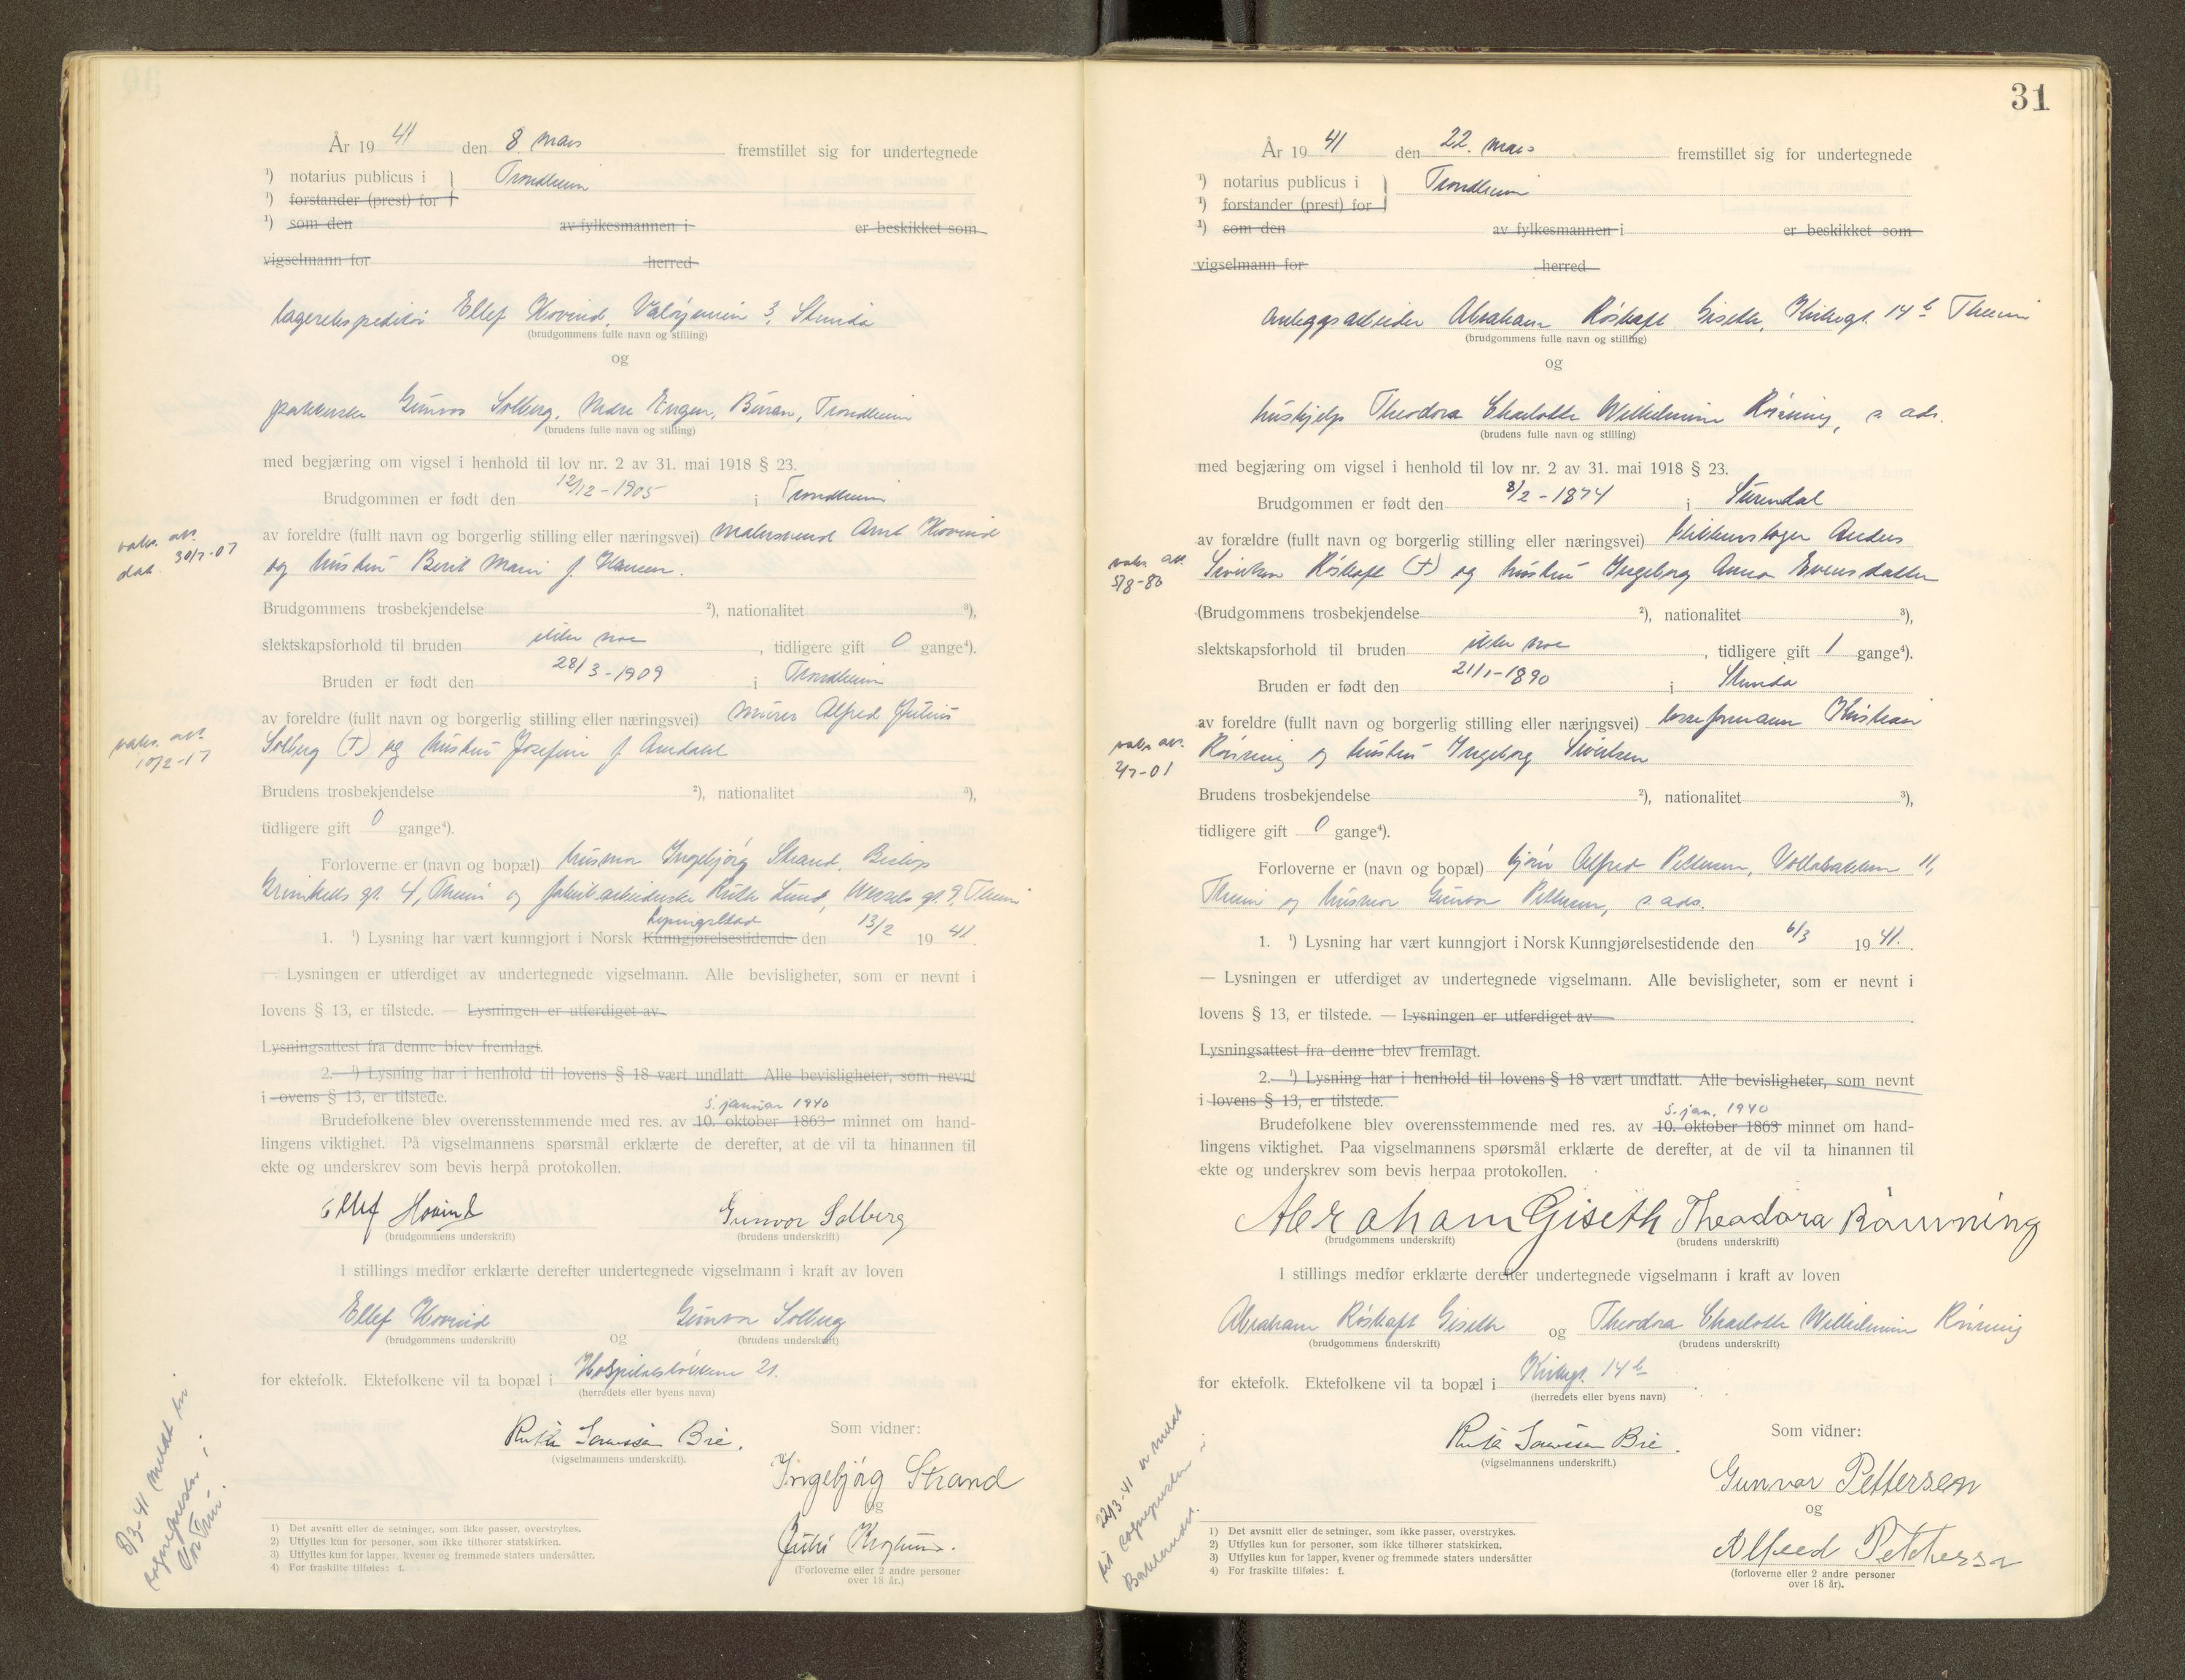 År 19 41 den 8 mars fremstillet sig for undertegnede
¹) notarius publicus i } Trondheim
¹) forstander (prest) for
¹) som den av fylkesmannen i er beskikket som
vigselmann for herred
lagerekspeditør Ellef Hovind, Valøyveien 3, Strinda
(brudgommens fulle navn og stilling)
og
Gunvor Solberg, Trondheim
(brudens fulle navn og stilling)
med begjæring om vigsel i henhold til lov nr. 2 av 31. mai 1918 § 23.
Brudgommen er født den 12/12-1905 i Trondheim
av foreldre (fullt navn og borgerlig stilling eller næringsvei) malersvend Arnt Hovind
og hustru Berit Marie f. Hansen.
vaks. att.
dat. 30/7-07
Brudgommens trosbekjendelse ²), nationalitet ³),
slektskapsforhold til bruden ikke noe , tidligere gift 0 gange⁴).
Bruden er født den 28/3-1909 i Trondheim
av foreldre (fullt navn og borgerlig stilling eller næringsvei) murer Alfred Julius
Solberg (†) og hustru Josefine f. Amdahl
vaks. att.
10/2-17
Brudens trosbekjendelse ²), nationalitet ³),
tidligere gift 0 gange⁴).
Forloverne er (navn og bopæl) husmor Ingebjørg Strand, Bishop
Grimkells gt. 4, Trheim og fabrikarbeiderske Ruth Lund, Wessels gt. 9, Trheim
Lysingsblad
1. ¹) Lysning har vært kunngjort i Norsk Kunngjørelsestidende den 13/2 19 41.
— Lysningen er utferdiget av undertegnede vigselmann. Alle bevisligheter, som er nevnt i
lovens § 13, er tilstede. — Lysningen er utferdiget av
Lysningsattest fra denne blev fremlagt.
2. ¹) Lysning har i henhold til lovens § 18 vært undlatt. Alle bevisligheter, som nevnt
i ovens § 13, er tilstede.
5. januar 1940
Brudefolkene blev overensstemmende med res. av 10. oktober 1863 minnet om hand-
lingens viktighet. På vigselmannens spørsmål erklærte de derefter, at de vil ta hinannen til
ekte og underskrev som bevis herpå protokollen.
Ellef Hovind Gunvor Solberg
(brudgommens underskrift) (brudens underskrift)
I stillings medfør erklærte derefter undertegnede vigselmann i kraft av loven
Ellef Hovind og Gunvor Solberg
(brudgommens underskrift) (brudens underskrift)
for ektefolk. Ektefolkene vil ta bopæl i Hospitalsløkkene 21.
(herredets eller byens navn)
Som vidner:
Ruth Sørensen Bie.
(vigselmannens underskrift).
Ingebjørg Strand
og
(Forloverne eller 2 andre personer
over 18 år.)
8/3-41 meldt til
sogneprest i
1) Det avsnitt eller de setninger, som ikke passer, overstrykes.
2) Utfylles kun for personer, som ikke tilhører statskirken.
3) Utfylles kun for lapper, kvener og fremmede staters undersåtter.
4) For fraskilte tilføies: f.
31
År 19 41 den 22. mars fremstillet sig for undertegnede
¹) notarius publicus i } Trondheim
¹) forstander (prest) for
¹) som den av fylkesmannen i er beskikket som
vigselmann for herred
Anleggsarbeider Abraham Røskaft Giseth, Kirkegt. 14 b Trheim
(brudgommens fulle navn og stilling)
og
hushjelp Theodora Charlotte Wilhelmine Rønning, s. ads.
(brudens fulle navn og stilling)
med begjæring om vigsel i henhold til lov nr. 2 av 31. mai 1918 § 23.
Brudgommen er født den 8/2-1874 i Surendal
av forældre (fullt navn og borgerlig stilling eller næringsvei) Anders
Sivertsen Røskaft (†) og hustru Ingeborg Anna Evensdatter
vaks. att.
5/8-80
(Brudgommens trosbekjendelse ²), nationalitet ³),
slektskapsforhold til bruden ikke noe , tidligere gift 1 gange⁴).
Bruden er født den 21/1-1890 i Strinda
av foreldre (fullt navn og borgerlig stilling eller næringsvei) losseformann Kristian
Rønning og hustru Ingeborg Sivertsen
vaks. att.
2/7-01
Brudens trosbekjendelse ²), nationalitet ³),
tidligere gift 0 gange⁴).
Forloverne er (navn og bopæl) Alfred Pettersen, Vollabakken 11,
Trheim og husmor Gunvor Pettersen, s. ads.
1. ¹) Lysning har vært kunngjort i Norsk Kunngjørelsestidende den 6/3 19 41.
— Lysningen er utferdiget av undertegnede vigselmann. Alle bevisligheter, som er nevnt i
lovens § 13, er tilstede. — Lysningen er utferdiget av
Lysningsattest fra denne blev fremlagt.
2. ¹) Lysning har i henhold til lovens § 18 vært undlatt. Alle bevisligheter, som nevnt
i lovens § 13, er tilstede.
5. jan. 1940
Brudefolkene blev overensstemmende med res. av 10. oktober 1863 minnet om hand-
lingens viktighet. Paa vigselmannens spørsmål erklærte de derefter, at de vil ta hinannen til
ekte og underskrev som bevis herpaa protokollen.
Abraham Giseth Theodora Rönning
(brudgommens underskrift) (brudens underskrift)
I stillings medfør erklærte derefter undertegnede vigselmann i kraft av loven
Abraham Røskaft Giseth og Theodora Charlotte Wilhelmine Rønning
(brudgommens underskrift) (brudens underskrift)
for ektefolk. Ektefolkene vil ta bopæl i Kirkegt. 14 b
(herredets eller byens navn)
Som vidner:
Ruth Sørensen Bie.
(vigselmannens underskrift.)
Gunvor Pettersen
og
Alfred Pettersen
(forloverne eller 2 andre personer
over 18 år).
22/3-41 er meldt
til sognepresten i
Bakklandet.
1) Det avsnitt eller de setninger, som ikke passer, overstrykes.
2) Utfylles kun for personer, som ikke tilhører statskirken.
3) Utfylles kun for lapper, kvener og fremmede staters undersåtter
4) For fraskilte tilføies: f.